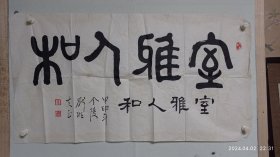 室雅人和
室雅人和
甲申年
2024.04.02 22:31